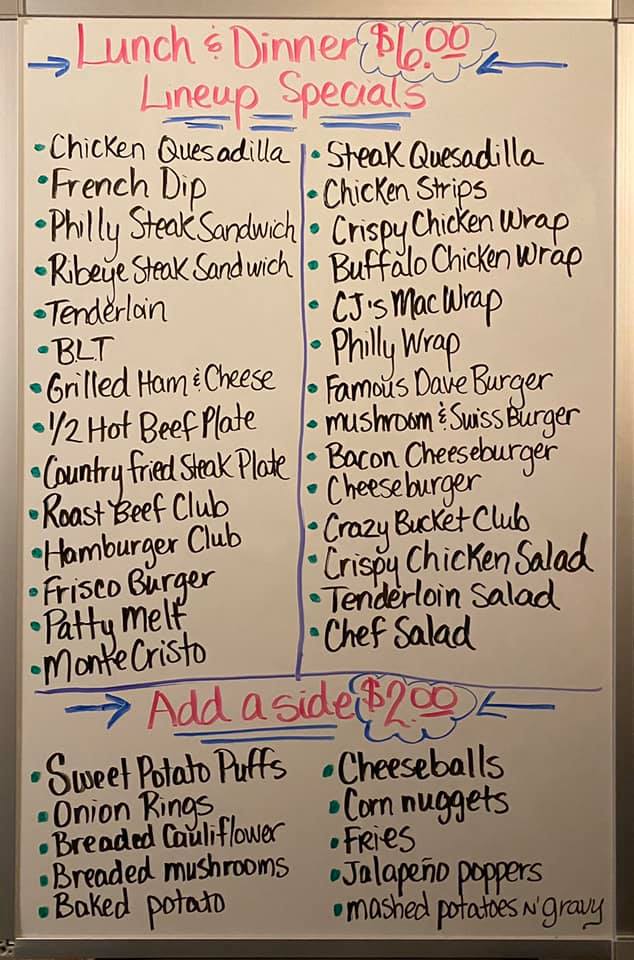 Lunch & Dinner $6.00
Lineup Specials
• Chicken Quesadilla
• French Dip
• Philly Steak Sandwich
• Ribeye Steak Sandwich
• Tenderloin
• BLT
• Grilled Ham & Cheese
• 1/2 Hot Beef Plate
• Country fried Steak Plate
• Roast Beef Club
• Hamburger Club
• Frisco Burger
• Patty Melt
• Monte Cristo
• Steak Quesadilla
• Chicken Strips
• Crispy Chicken Wrap
• Buffalo Chicken Wrap
• CJ's Mac Wrap
• Philly Wrap
• Famous Dave Burger
• mushroom & Swiss Burger
• Bacon Cheeseburger
• Cheeseburger
• Crazy Bucket Club
• Crispy Chicken Salad
• Tenderloin Salad
• Chef Salad
Add a side $2.00
• Sweet Potato Puffs
• Onion Rings
• Breaded Cauliflower
• Breaded mushrooms
• Baked potato
• Cheeseballs
• Corn nuggets
• Fries
• Jalapeño poppers
• mashed potatoes N' gravy